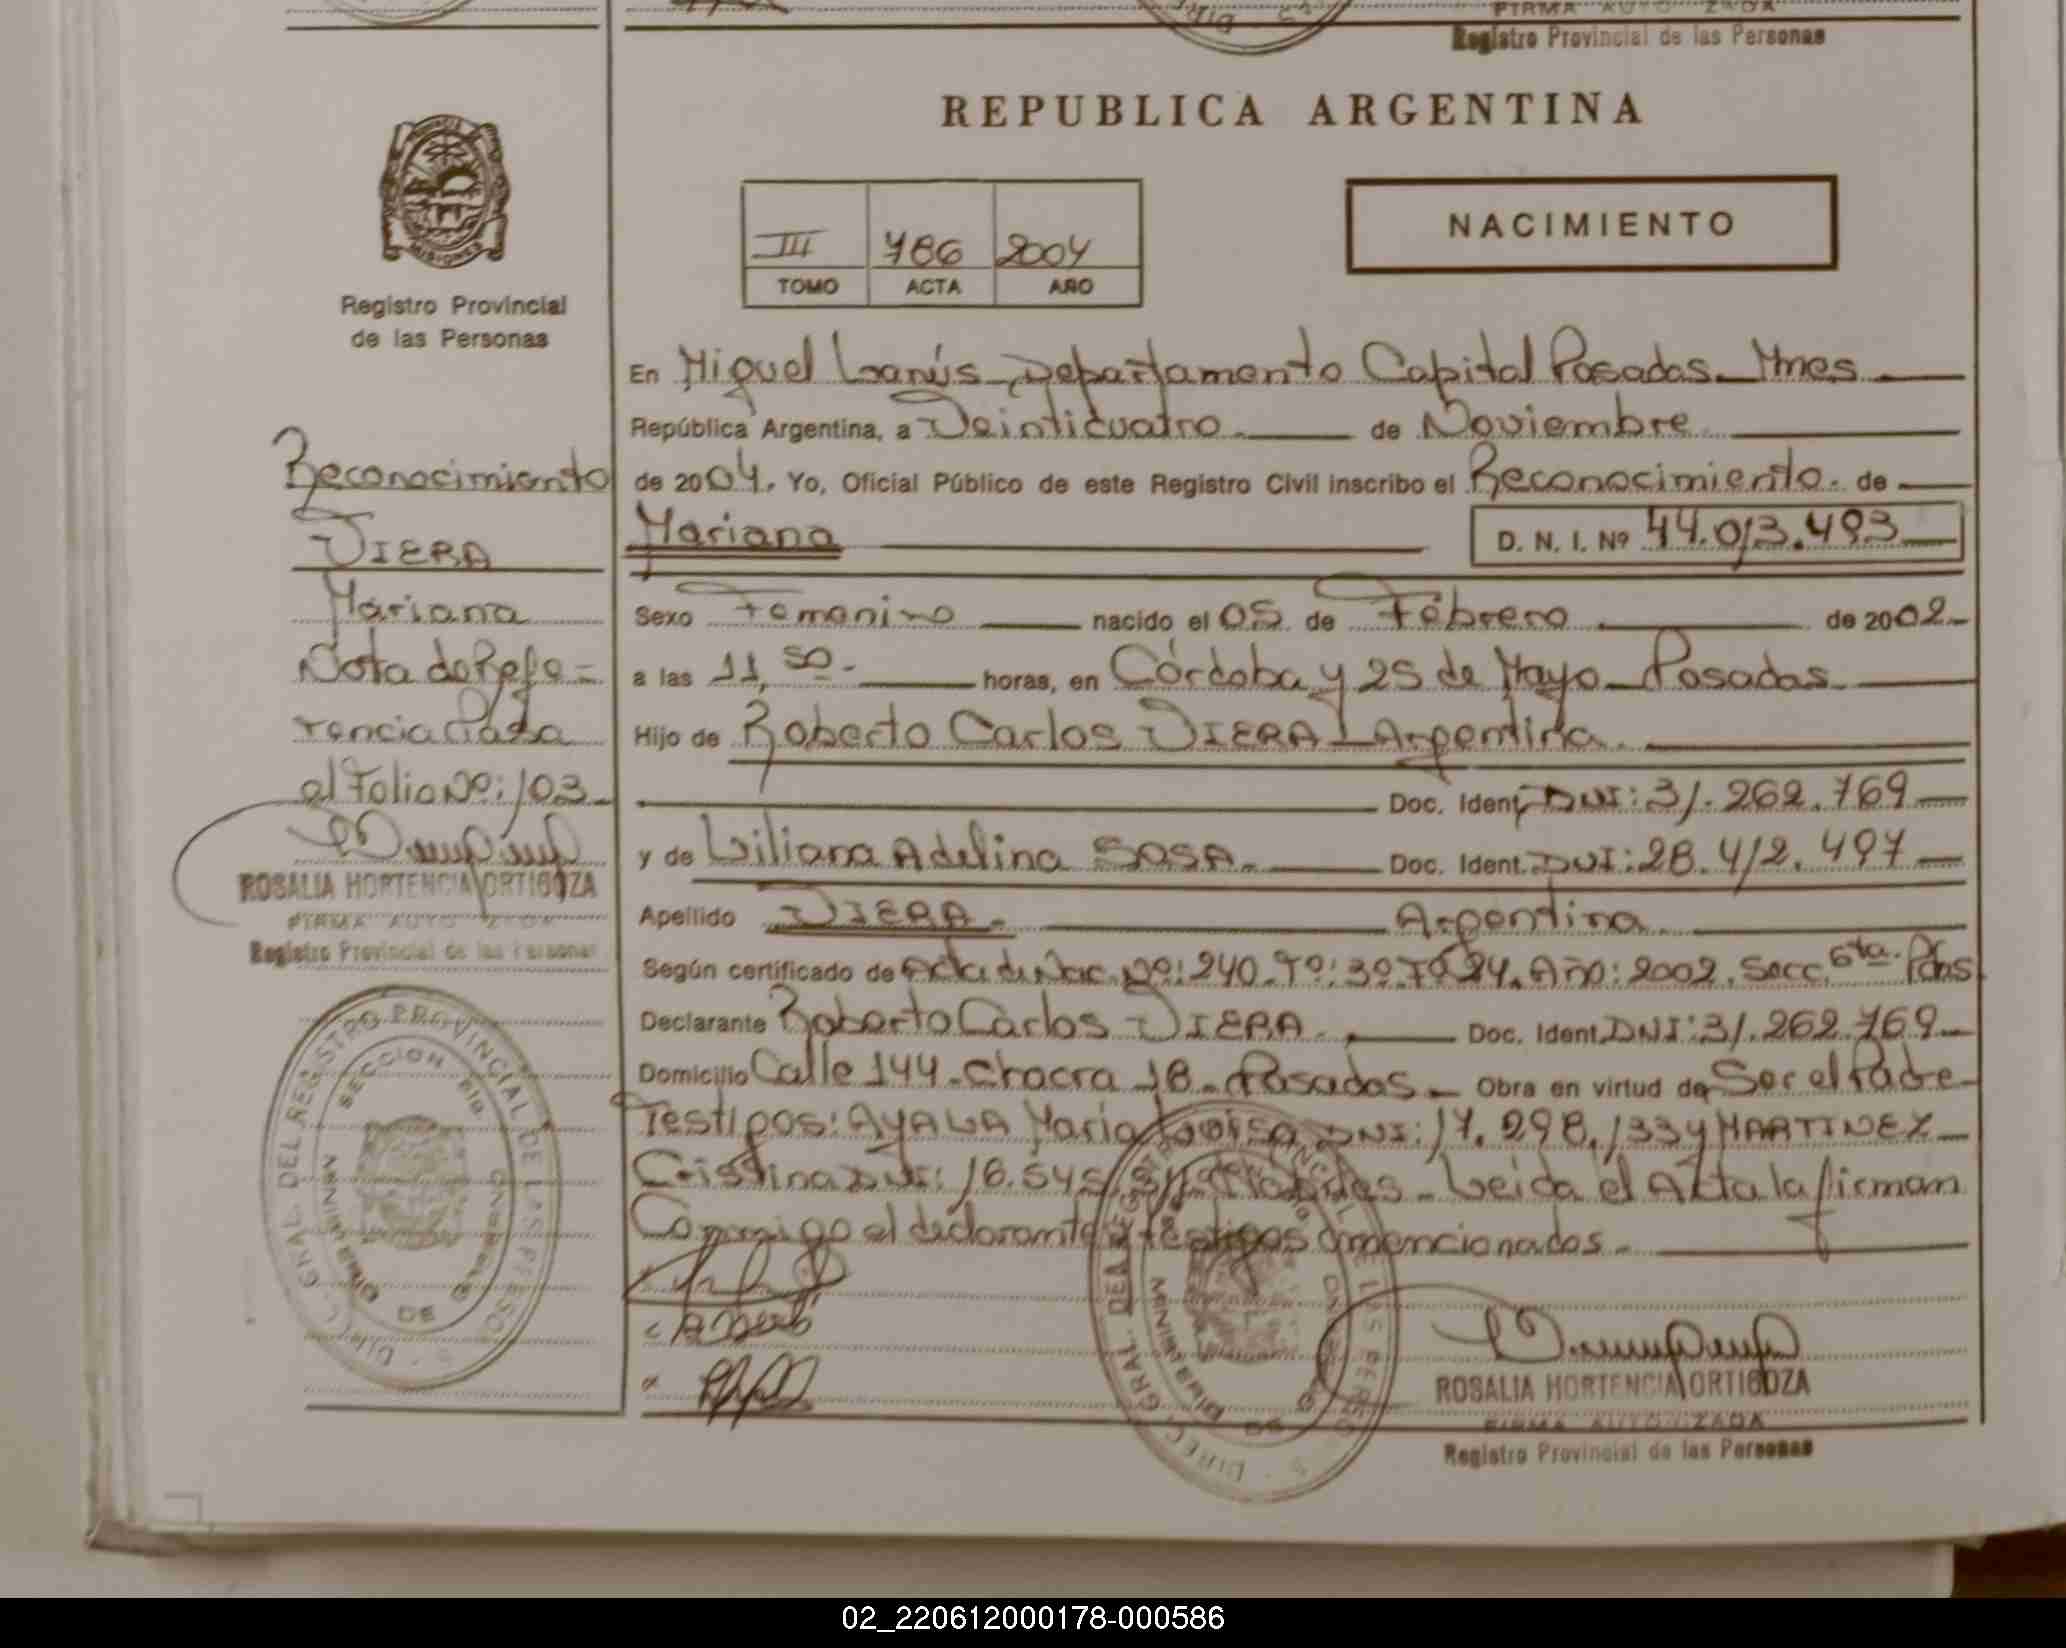 FIRMA AUTORIZADA
Registro Provincial de las Personas
REPUBLICA ARGENTINA
NACIMIENTO
III 786 2004
TOMO ACTA AÑO
MISIONES
Registro Provincial
de las Personas
Reconocimiento
VIERA
Mariana
Nota de Refe=
rencia Pasa
al Folio Nº: 103
ROSALIA HORTENCIA ORTIGOZA
FIRMA AUTORIZADA
Registro Provincial de las Personas
En Miguel Lanús, Departamento Capital Posadas Mnes
República Argentina, a Veinticuatro de Noviembre
de 2004. Yo, Oficial Público de este Registro Civil inscribo el Reconocimiento. de
Mariana D. N. I. Nº 44.013.493
Sexo Femenino nacido el 05 de Febrero de 2002
a las 11,50 horas, en Córdoba y 25 de Mayo Posadas
Hijo de Roberto Carlos VIERA Argentina.
Doc. Ident. DNI: 31.262.769
y de Liliana Adelina SOSA Doc. Ident. DNI: 28.412.497
Apellido VIERA Argentina
Según certificado de Acta de Nac. Nº: 240. Tº: 3º. Fº 24. Año: 2002. Secc. 6ta. Pdas
Declarante Roberto Carlos VIERA Doc. Ident. DNI: 31.262.769
Domicilio Calle 144 - Chacra 18 - Posadas Obra en virtud de Ser el Padre
Testigos: AYALA María Luisa DNI: 17.298.133 y MARTINEZ
Cristina DNI: 16.545. Leída el Acta la firman
Conmigo el declarante y testigos mencionados.
ROSALIA HORTENCIA ORTIGOZA
FIRMA AUTORIZADA
Registro Provincial de las Personas
02_220612000178-000586